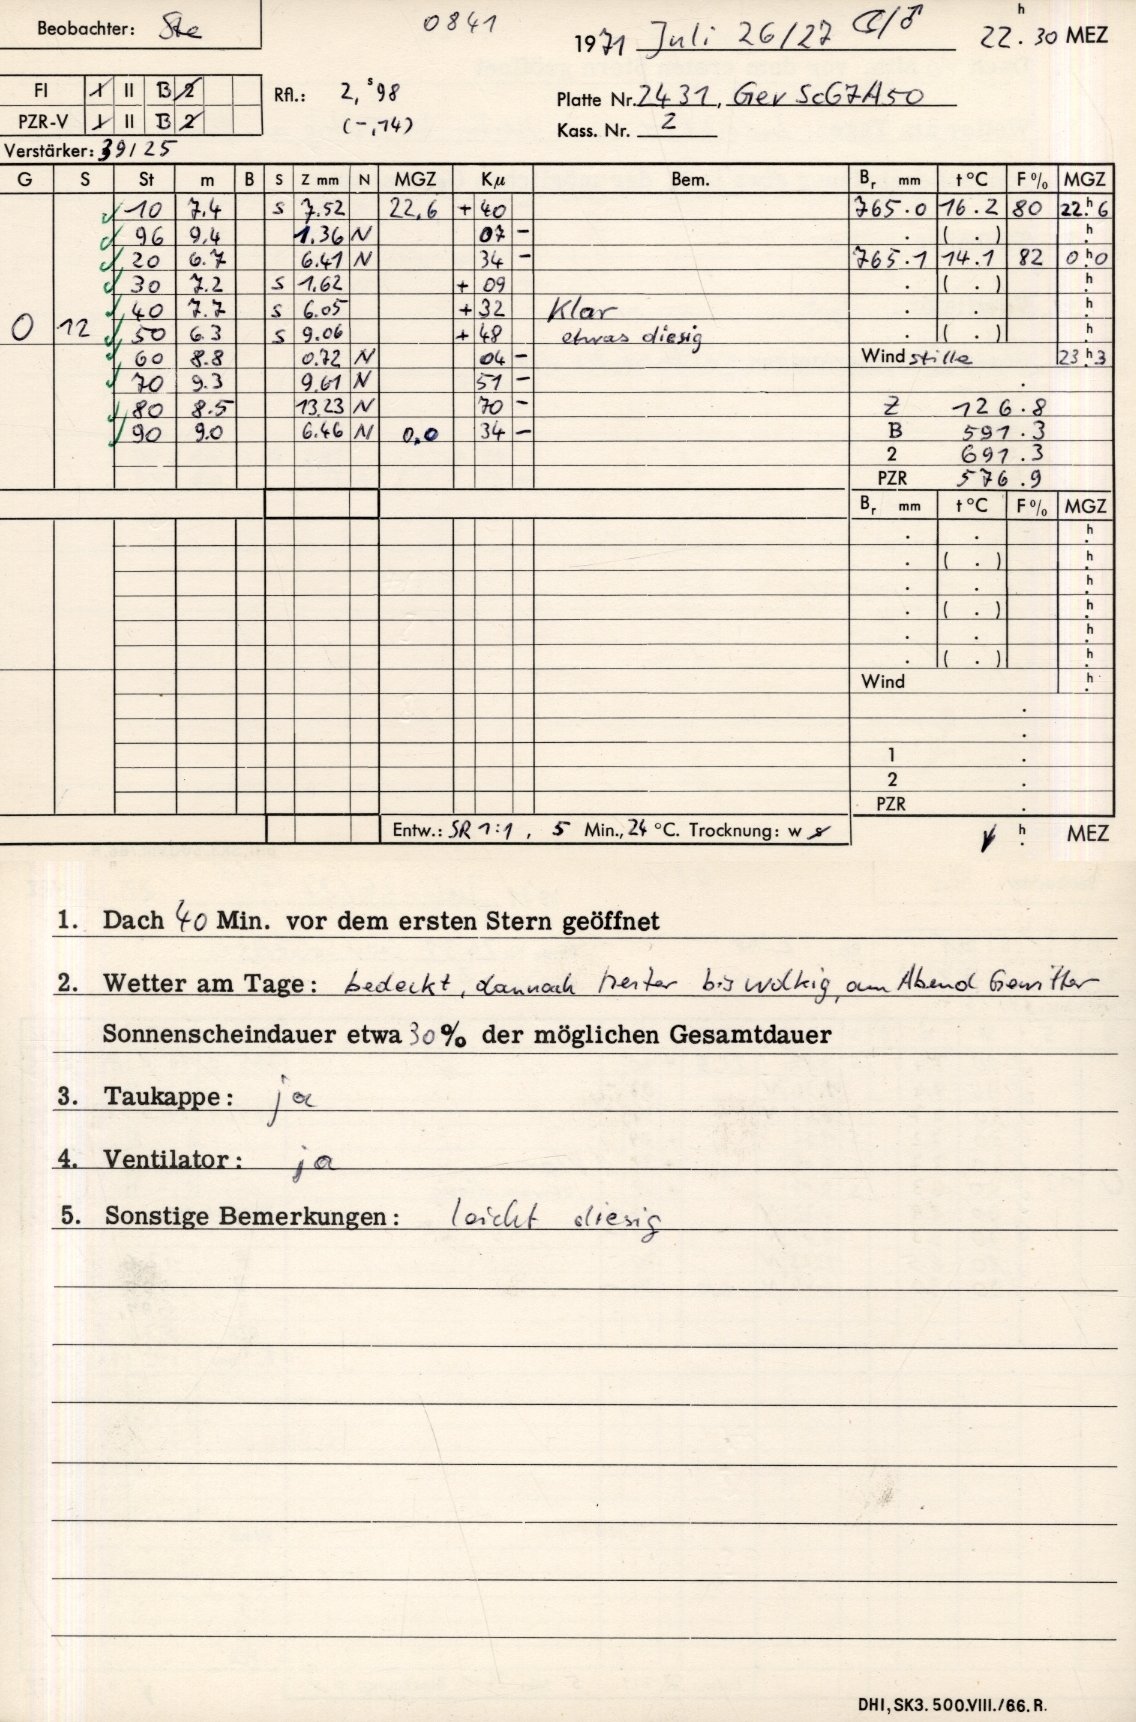 Beobachter: Ste
0841
1971 Juli 26/27 ☾/♂ 22.h30 MEZ
FI I II B 2
PZR-V I II B 2
Rfl.: 2,s98
(-,14)
Platte Nr. 2431, Gev Sc67A50
Kass. Nr. 2
Verstärker: 39/25
G S St m B S Z mm N MGZ Kμ Bem. Br mm t°C F% MGZ
10 7.4 S 7.52 22,6 + 40 765.0 16.2 80 22.h6
96 9.4 1.36 N 07 - . ( . ) h.
20 6.7 6.41 N 34 - 765.1 14.1 82 0.h0
30 7.2 S 1.62 + 09 . ( . ) h.
40 7.7 S 6.05 + 32 Klar . . h.
0 12 50 6.3 S 9.06 + 48 etwas diesig . ( . ) h.
60 8.8 0.72 N 04 - Wind stille 23.h3
70 9.3 9.61 N 51 - .
80 8.5 13.23 N 70 - Z 126.8
90 9.0 6.46 N 0,0 34 - B 591.3
2 691.3
PZR 576.9
Br mm t°C F% MGZ
. . h.
. ( . ) h.
. . h.
. ( . ) h.
. . h.
. ( . ) h.
Wind h.
.
.
1 .
2 .
PZR .
Entw.: SR 1:1, 5 Min., 24 °C. Trocknung: w s
h. MEZ
1. Dach 40 Min. vor dem ersten Stern geöffnet
2. Wetter am Tage: bedeckt, dannach heiter bis wolkig, am Abend Gewitter
Sonnenscheindauer etwa 30% der möglichen Gesamtdauer
3. Taukappe: ja
4. Ventilator: ja
5. Sonstige Bemerkungen: leicht diesig
DHI, SK3. 500.VIII./66. R.